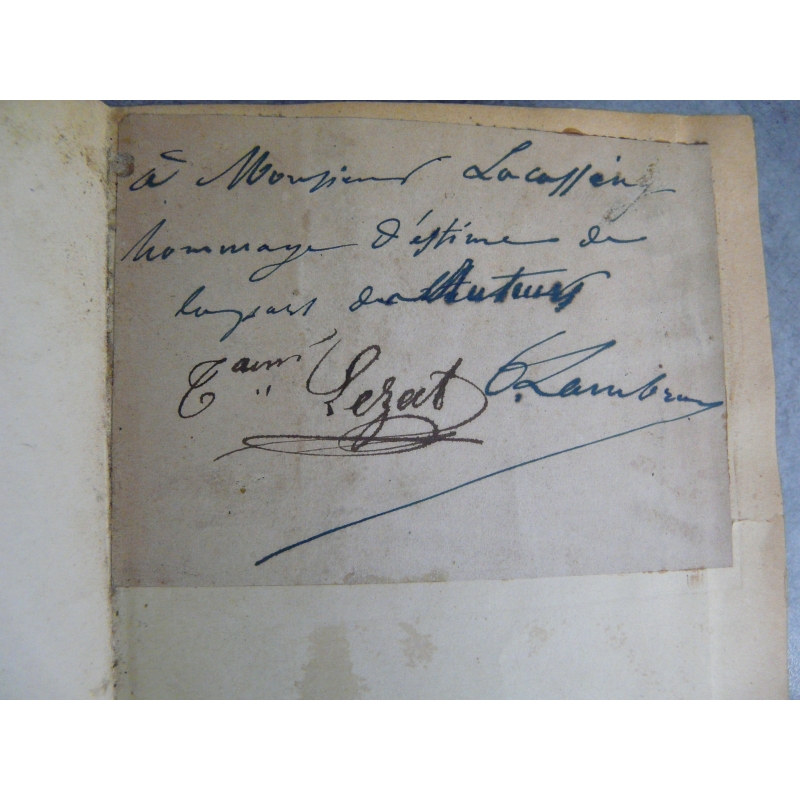 à Monsieur Lacassin
hommage d'estime de
la part des Auteurs
Tte Lezat T. Lambron